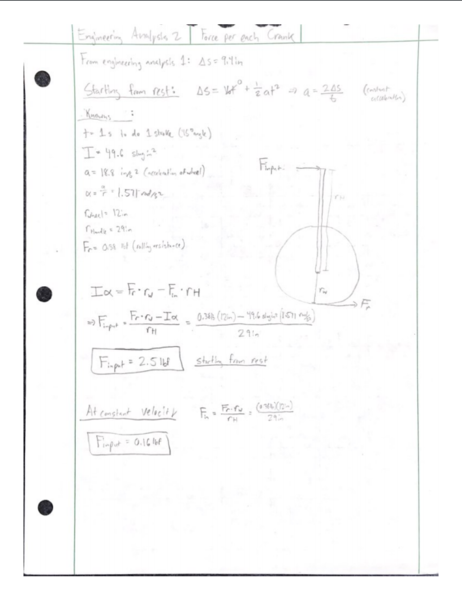 Engineering Analysis 2 | Force per each Crank
From engineering analysis 1: ΔS = 9.4 in
Starting from rest: ΔS = V₀t + ½at² ⇒ a = 2ΔS/t² (constant acceleration)
Knowns:
t = 1 s to do 1 stroke
I = 49.6 slug·in²
a = 18.8 in/s² (acceleration of wheel)
α = a/r = 1.571 rad/s²
r_wheel = 12 in
r_handle = 29 in
F_r = lbf (rolling resistance)
F_input
r_H
r_w
F_r
Iα = F_r·r_w − F_in·r_H
⇒ F_input = (F_r·r_w − Iα)/r_H = (12in) − 49.6 slug in² (1.571 rad/s²) / 29 in
F_input = 2.5 lbf starting from rest
At constant velocity F_in = F_r·r_w/r_H = (12in)/29in
F_input = 0.16 lbf